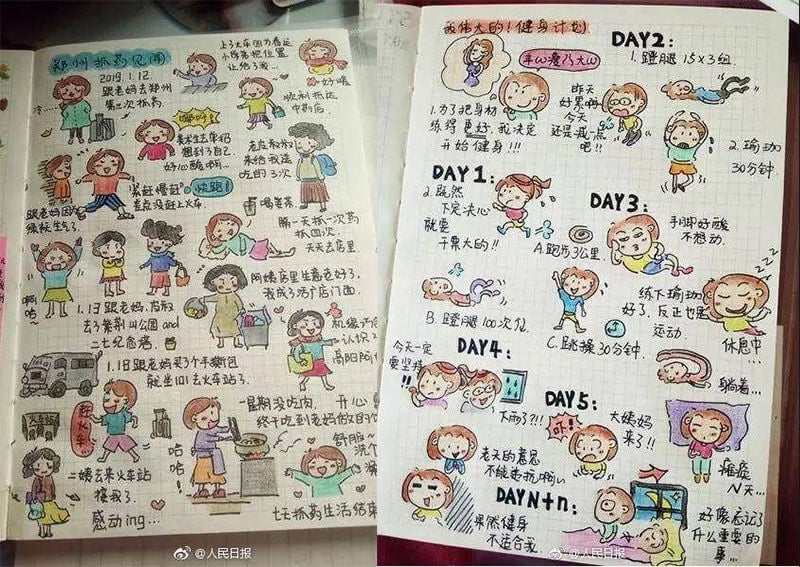 郑州抓药见闻
2019.1.12
跟老妈去郑州
第二次抓药
上了火车因为春运
小徐弟把位置
让给了我...
好暖
顺利抵达
中药店
冷...
想到了自己
好心酸啊...
来给我送
吃的3次
紧赶慢赶
快跑!
差点没赶上火车
跟老妈因
喝姜茶
隔一天抓一次药
抓四次
天天去店里
啊哈~
阿姨店里生意老好了,
我成了活广店门面.
1.1日跟老妈,
去了紫荆山公园and
二七纪念塔.
1.1日跟老妈买了个手撕包
就坐101去火车站了
火车站
赶火车!
一星期没吃肉,
开心
终于吃到老妈做的饭
哈哈!
舒服~
洗个
二姨去火车站
接我了..
感动ing...
七天抓药生活结束
我伟大的!健身计划
平凹变凸大凹
1.为了把身材
练得更好,我决定
开始健身!!!
DAY1:
2.既然
下定决心
就要
干票大的!!
A.跑步3公里.
B.蹬腿100次/位
C.跳操30分钟.
DAY2:
1.蹬腿 15×3组.
昨天
好累啊
今天
还是减一点
吧!!
2.瑜珈
30分钟.
DAY3:
手脚好酸
不想动.
练下瑜珈
好了,反正也是
运动.
zzz
休息中...
躺着...
DAY4:
今天一定
要坚持!!
下雨了?!!
老天的意思
不能违抗啊~
DAY5:
吓!
大姨妈
来了!!
瘫痪
N天...
DAYN+n:
果然健身
不适合我.
好像忘记了
什么重要的
事...
@人民日报
@人民日报